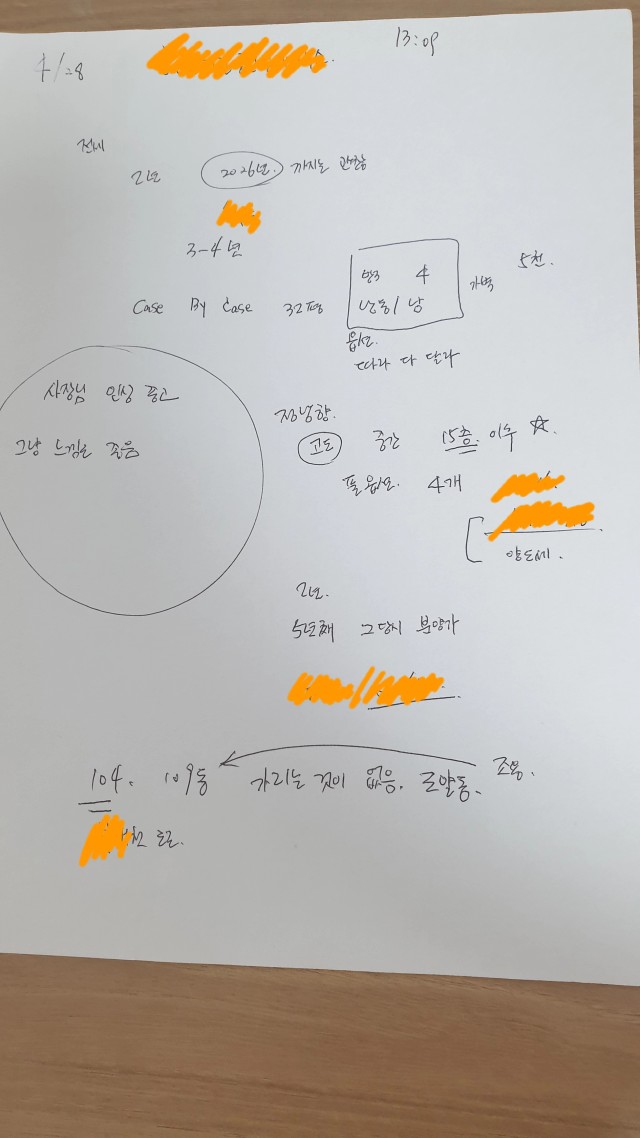 13:09
전세
2년 2026년. 까지는 괜찮음
3-4년
5천.
방3 4
Case By Case 32평 남 가벽
옵션.
따라 다 달라
사장님 인상 좋고
정남향.
그냥 느낌은 좋음
고도 중간 15층. 이후 ☆
풀옵션. 4개
양도세.
2년.
5년째 그 당시 분양가
조용.
104. 109동 가리는 것이 없음. 로얄동.
도로.